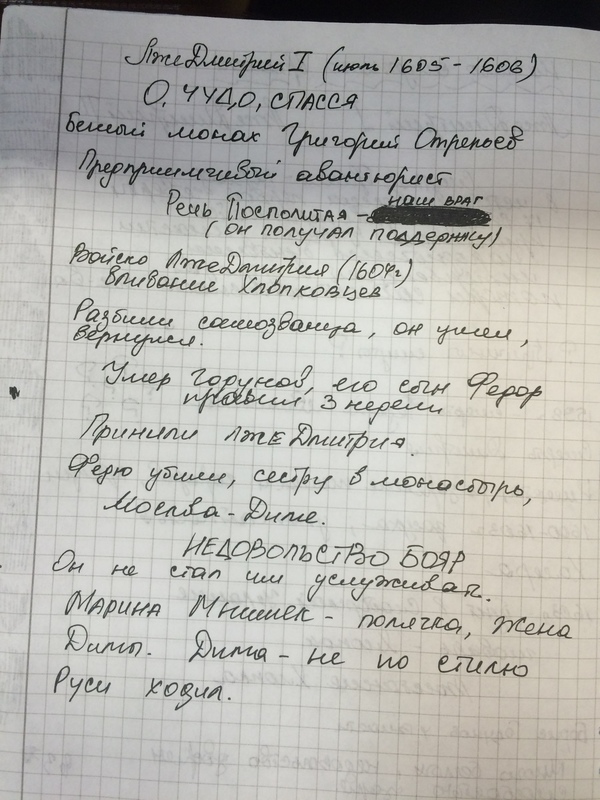 ЛжеДмитрий I (июль 1605 - 1606)
О, ЧУДО, СПАССЯ
Беглый монах Григорий Отрепьев
Предприимчивый авантюрист
наш враг
Речь Посполитая -
(он получал поддержку)
Войско ЛжеДмитрия (1604г)
вливание Хлопковцев
Разбили самозванца, он ушел,
вернулся.
Умер Годунов, его сын Федор
правил 3 недели
Приняли лжеДмитрия.
Федю убили, сестру в монастырь,
Москва - Диме.
НЕДОВОЛЬСТВО БОЯР
Он не стал им услуживат.
Марина Мнишек - полячка, жена
Димы. Дима - не по стилю
Руси ходил.